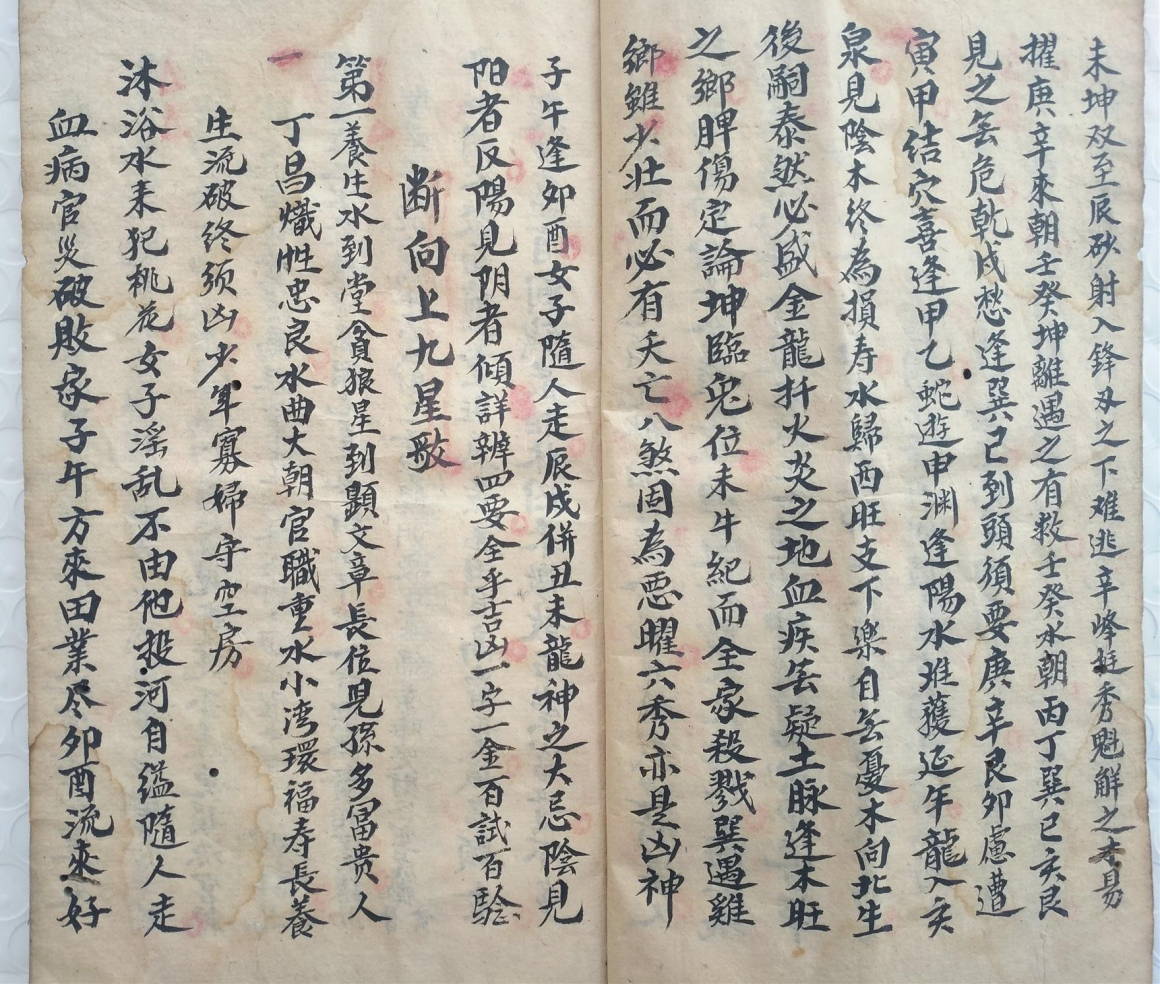 未坤双至辰砂射入鋒刃之下难逃辛峰挺秀魁解之未易
擢庚辛來朝壬癸坤離遇之有救壬癸水朝丙丁巽巳亥艮
見之無危乾戌愁逢巽巳到頭須要庚辛艮卯慮遭
寅甲结穴喜逢甲乙蛇逰申渊逢陽水难獲延年龍入亥
泉見陰木终為損寿水歸西旺支下樂自無憂木向北生
後嗣泰然必盛金龍扦火炎之地血疾無疑土脉逢木旺
之鄉脾傷定論坤臨兎位未牛紀而全家殺戮巽遇雞
鄉雖少壮而必有夭亡八煞固為惡曜六秀亦是凶神
子午逢卯酉女子隨人走辰戌併丑未龍神之大忌陰見
阳者反陽見阴者傾詳辨四要全乎吉凶一字一金百試百騐
断向上九星歌
第一養生水到堂貪狼星到顯文章長位児孫多冨贵人
丁昌熾性忠良水曲大朝官職重水小湾環福寿長養
生流破终须凶少年寡婦守空房
沐浴水来犯桃花女子滛乱不由他投河自缢隨人走
血病官災破敗家子午方來田業尽卯酉流來好